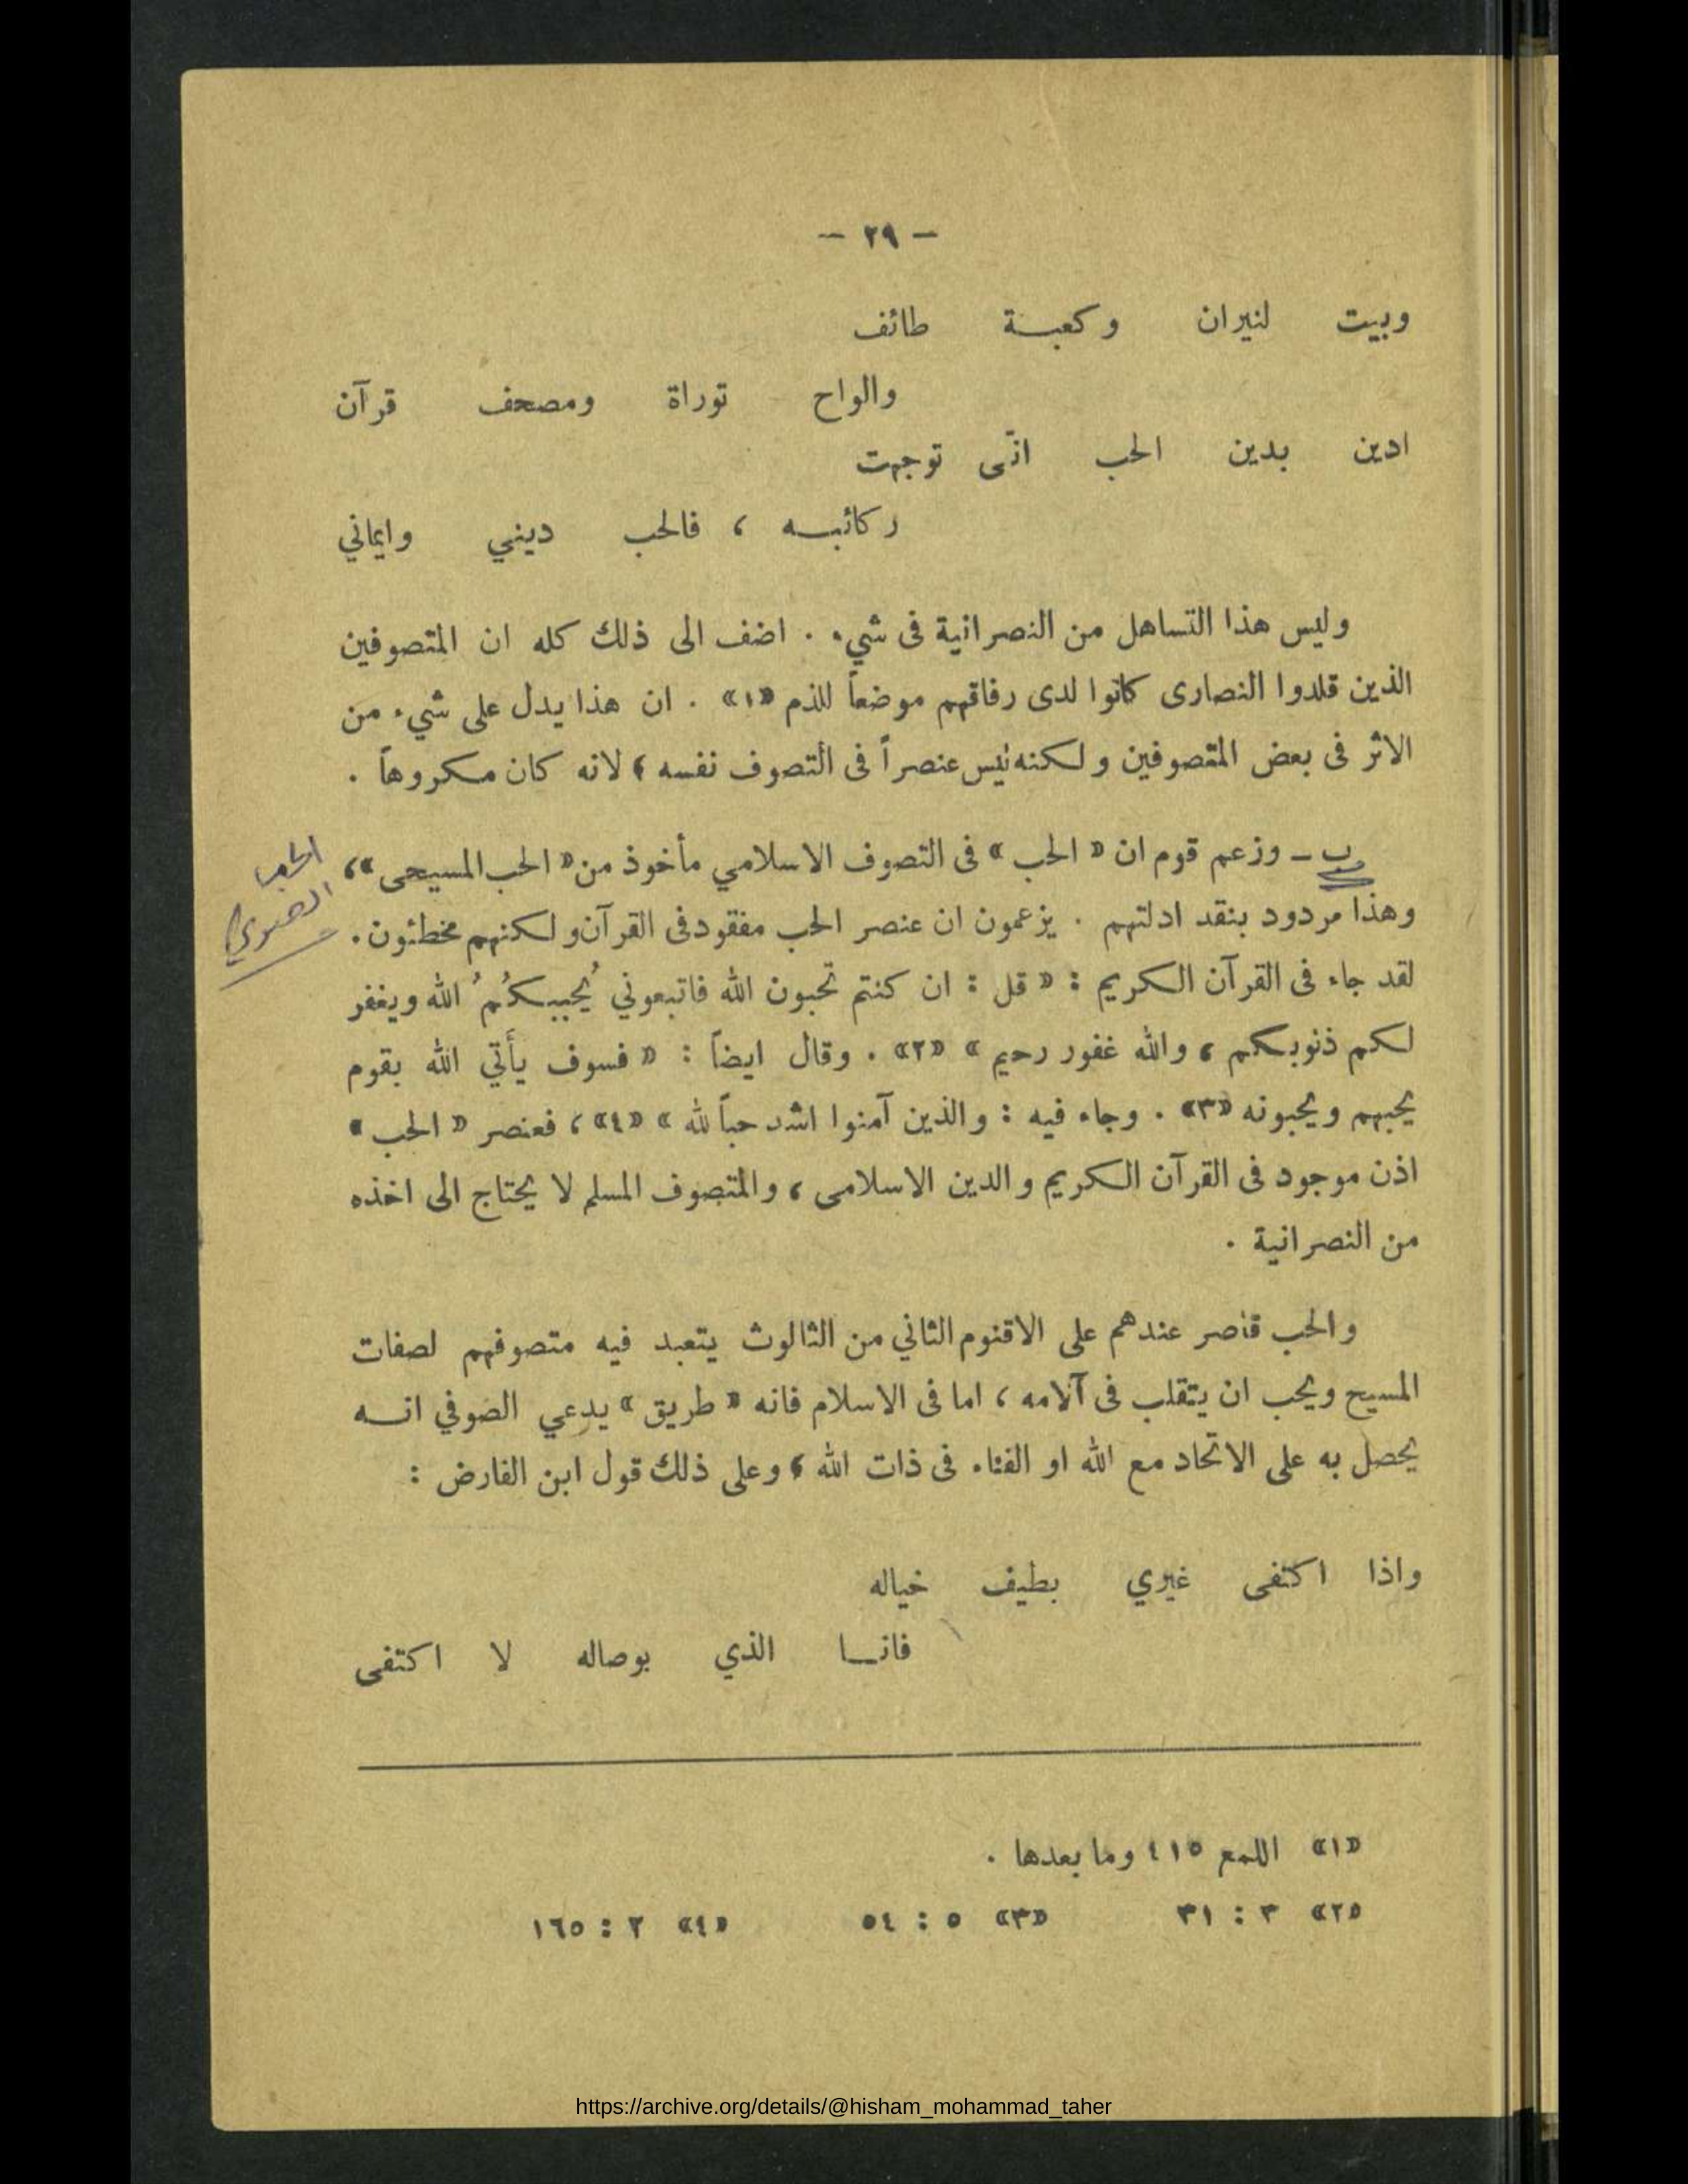 — ٢٩ —
وبيت لنيران وكعبة طائف
والواح توراة ومصحف قرآن
ادين بدين الحب انّى توجهت
ركائبه ، فالحب ديني وايماني
وليس هذا التساهل من النصرانية فى شيء . اضف الى ذلك كله ان المتصوفين
الذين قلدوا النصارى كانوا لدى رفاقهم موضعاً للذم «١» . ان هذا يدل على شيء من
الاثر فى بعض المتصوفين ولكنه ليس عنصراً فى التصوف نفسه ، لانه كان مكروهاً .
ب ـ وزعم قوم ان « الحب » فى التصوف الاسلامي مأخوذ من « الحب المسيحى » ،
وهذا مردود بنقد ادلتهم . يزعمون ان عنصر الحب مفقود فى القرآن ولكنهم مخطئون .
الحب
الصوفي
لقد جاء فى القرآن الكريم : « قل : ان كنتم تحبون الله فاتبعوني يُحببكُمُ الله ويغفر
لكم ذنوبكم ، والله غفور رحيم » «٢» . وقال ايضاً : « فسوف يأتي الله بقوم
يحبهم ويحبونه «٣» . وجاء فيه : والذين آمنوا اشد حباً لله » «٤» ، فعنصر « الحب »
اذن موجود فى القرآن الكريم والدين الاسلامى ، والمتصوف المسلم لا يحتاج الى اخذه
من النصرانية .
والحب قاصر عندهم على الاقنوم الثاني من الثالوث يتعبد فيه متصوفهم لصفات
المسيح ويحب ان يتقلب فى آلامه ، اما فى الاسلام فانه « طريق » يدعي الصوفي انه
يحصل به على الاتحاد مع الله او الفناء فى ذات الله ، وعلى ذلك قول ابن الفارض :
واذا اكتفى غيري بطيف خياله
فانا الذي بوصاله لا اكتفى
«١» اللمع ٤١٥ وما بعدها .
«٢» ٣ : ٣١ «٣» ٥ : ٥٤ «٤» ٢ : ١٦٥
https://archive.org/details/@hisham_mohammad_taher